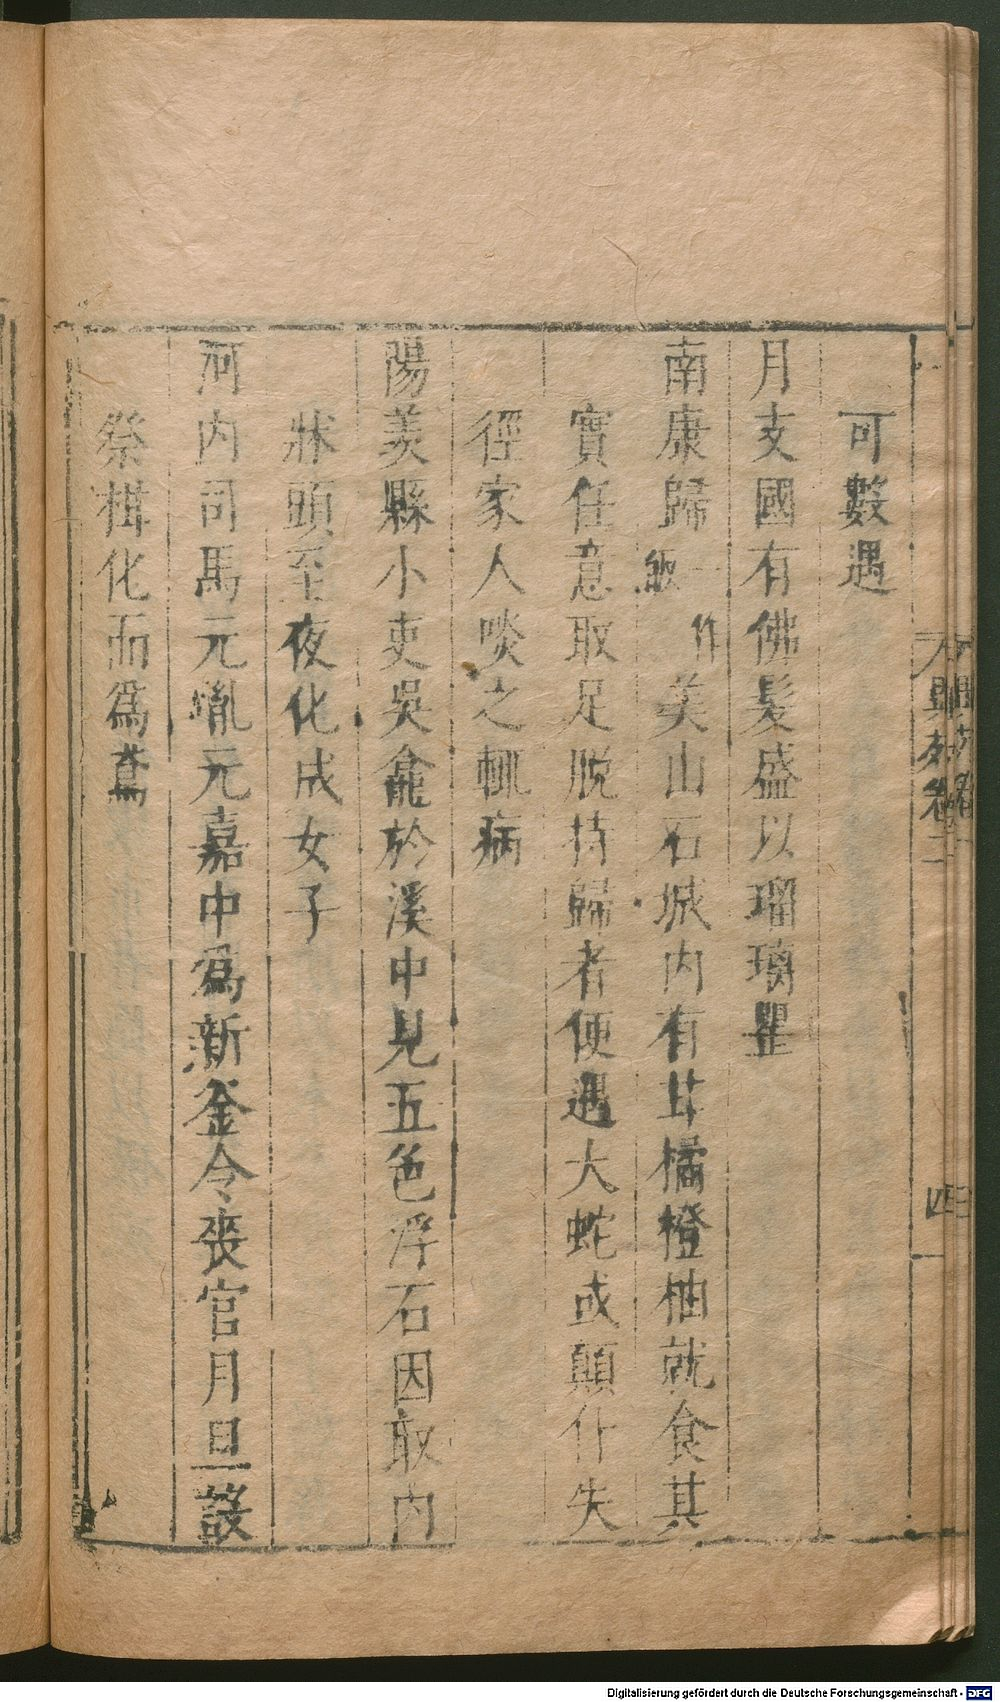 可數遇
月支國有佛髮盛以瑠璃罌
南康歸一作美山石城内有甘橘橙柚就食其
實任意取足脱持歸者便遇大蛇或顛仆失
徑家人啖之輒病
陽羨縣小吏吳龕於溪中見五色浮石因取内
牀頭至夜化成女子
河内司馬元胤元嘉中為新釜令喪官月旦設
祭柑化而為鳶
異苑卷二
四
Digitalisierung gefördert durch die Deutsche Forschungsgemeinschaft - DFG